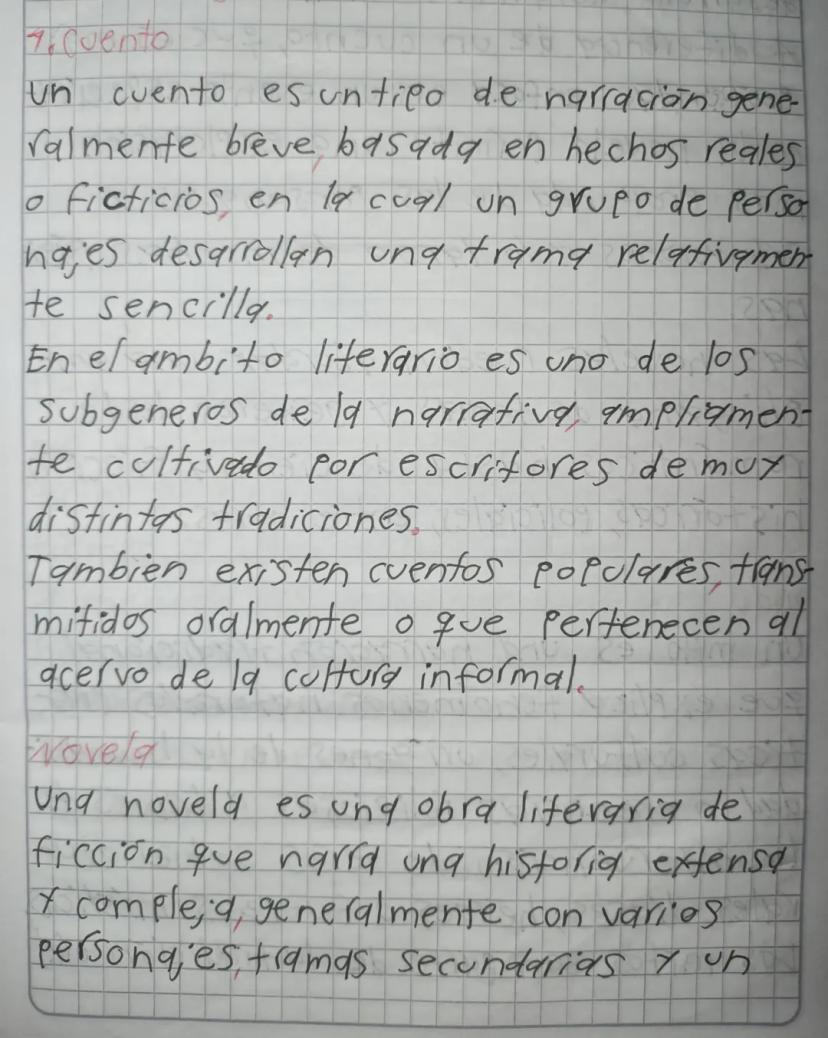 1. Cuento
un cuento es un tipo de narración gene-
ralmente breve, basada en hechos reales
o ficticios, en la cual un grupo de perso
najes desarrollan una trama relativamen
te sencilla.
En el ambito literario es uno de los
subgeneros de la narrativa, ampliamen-
te cultivado por escritores de muy
distintas tradiciones.
Tambien existen cuentos populares, trans-
mitidos oralmente o que pertenecen al
acervo de la cultura informal.
Novela
una novela es una obra literaria de
ficción que narra una historia extensa
y compleja, generalmente con varios
personajes, tramas secundarias y un